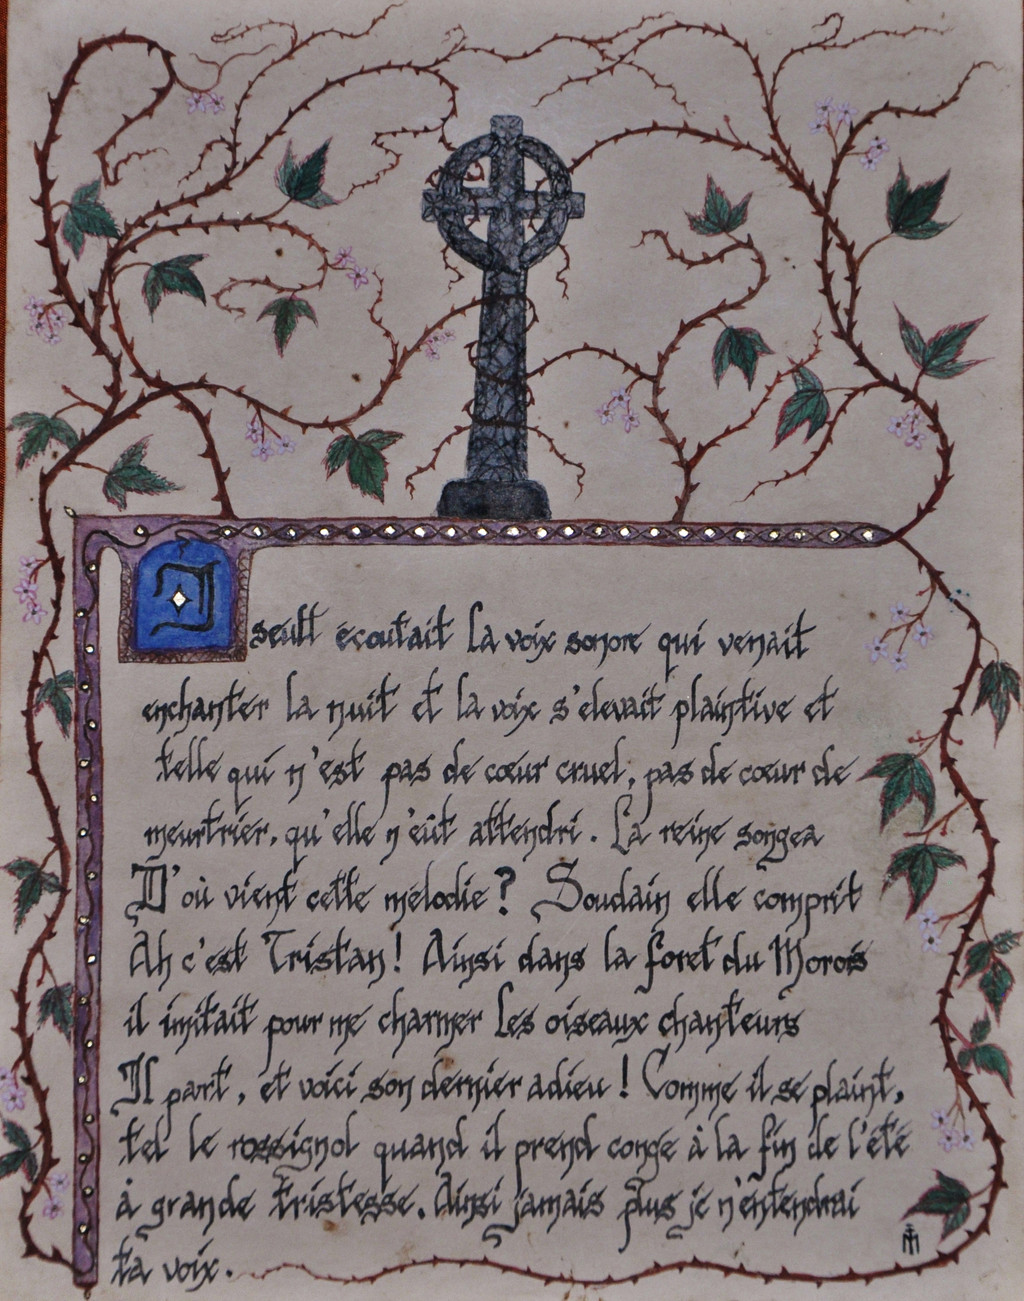 Iseult écoutait la voix sonore qui venait
enchanter la nuit et la voix s'élevait plaintive et
telle qui n'est pas de cœur cruel, pas de cœur de
meurtrier, qu'elle n'eût attendri. La reine songea
D'où vient cette mélodie? Soudain elle comprit
Ah c'est Tristan! Ainsi dans la foret du Morois
il imitait pour me charmer les oiseaux chanteurs
Il part, et voici son dernier adieu! Comme il se plaint,
tel le rossignol quand il prend congé à la fin de l'été
à grande tristesse. Ainsi jamais plus je n'entendrai
ta voix.